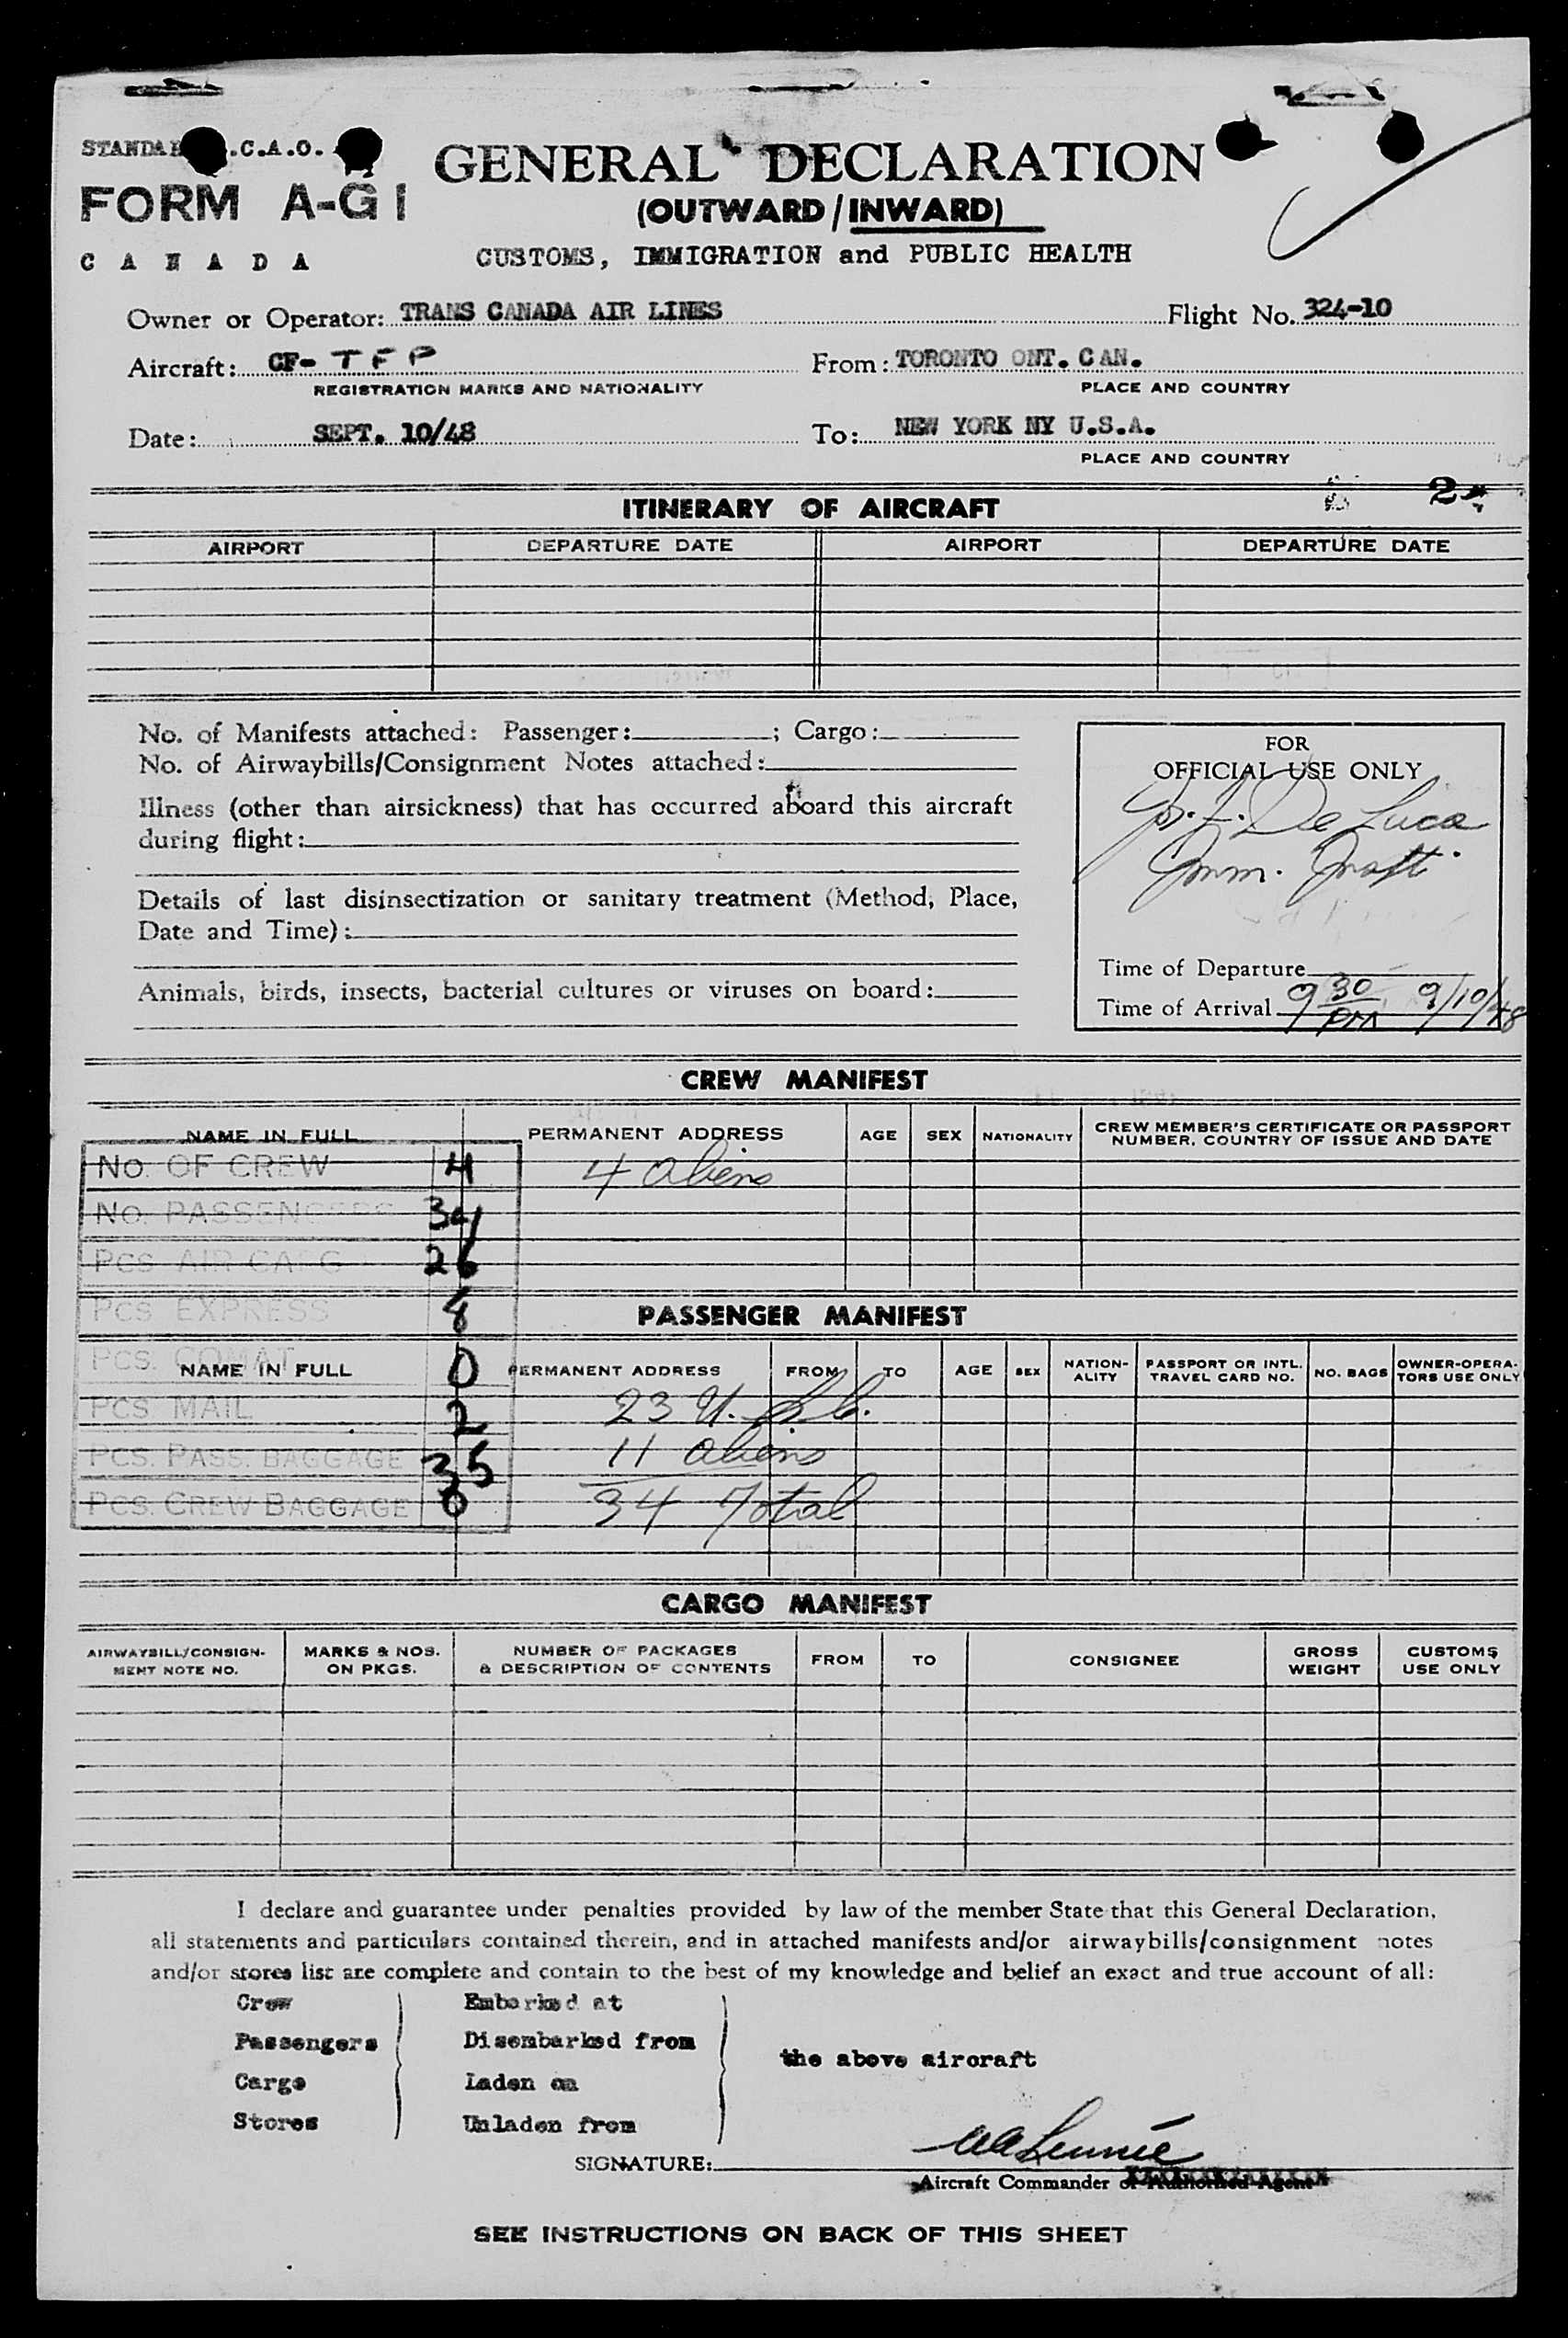 STANDA .C.A.O.
FORM A-G1
CANADA
GENERAL DECLARATION
(OUTWARD/INWARD)
CUSTOMS, IMMIGRATION and PUBLIC HEALTH
Owner or Operator: TRANS CANADA AIR LINES Flight No. 324-10
Aircraft: CF- TFP From: TORONTO ONT. CAN.
REGISTRATION MARKS AND NATIONALITY PLACE AND COUNTRY
Date: SEPT. 10/48 To: NEW YORK NY U.S.A.
PLACE AND COUNTRY
2
ITINERARY OF AIRCRAFT
AIRPORT DEPARTURE DATE AIRPORT DEPARTURE DATE
No. of Manifests attached: Passenger: ; Cargo:
No. of Airwaybills/Consignment Notes attached:
Illness (other than airsickness) that has occurred aboard this aircraft
during flight:
Details of last disinsectization or sanitary treatment (Method, Place,
Date and Time):
Animals, birds, insects, bacterial cultures or viruses on board:
FOR
OFFICIAL USE ONLY
De Luca
Imm. Inspt.
Time of Departure
Time of Arrival 9 30 PM 9/10/48
CREW MANIFEST
NAME IN FULL PERMANENT ADDRESS AGE SEX NATIONALITY CREW MEMBER'S CERTIFICATE OR PASSPORT NUMBER, COUNTRY OF ISSUE AND DATE
No. OF CREW 4 4 aliens
No. PASSENGERS 34
Pcs AIR CARG 26
Pcs EXPRESS 8
PASSENGER MANIFEST
Pcs. COMAT 0
NAME IN FULL PERMANENT ADDRESS FROM TO AGE SEX NATION-ALITY PASSPORT OR INTL. TRAVEL CARD NO. NO. BAGS OWNER-OPERA-TORS USE ONLY
Pcs MAIL 2 23 U.S.C.
Pcs. PASS. BAGGAGE 35 11 aliens
Pcs. CREW BAGGAGE 0 34 Total
CARGO MANIFEST
AIRWAYBILL/CONSIGN-MENT NOTE NO. MARKS & NOS. ON PKGS. NUMBER OF PACKAGES & DESCRIPTION OF CONTENTS FROM TO CONSIGNEE GROSS WEIGHT CUSTOMS USE ONLY
I declare and guarantee under penalties provided by law of the member State that this General Declaration,
all statements and particulars contained therein, and in attached manifests and/or airwaybills/consignment notes
and/or stores list are complete and contain to the best of my knowledge and belief an exact and true account of all:
Crew Embarked at
Passengers Disembarked from
the above aircraft
Cargo Laden on
Stores Unladen from
SIGNATURE: WA Lennie
Aircraft Commander or Authorised Agent
SEE INSTRUCTIONS ON BACK OF THIS SHEET